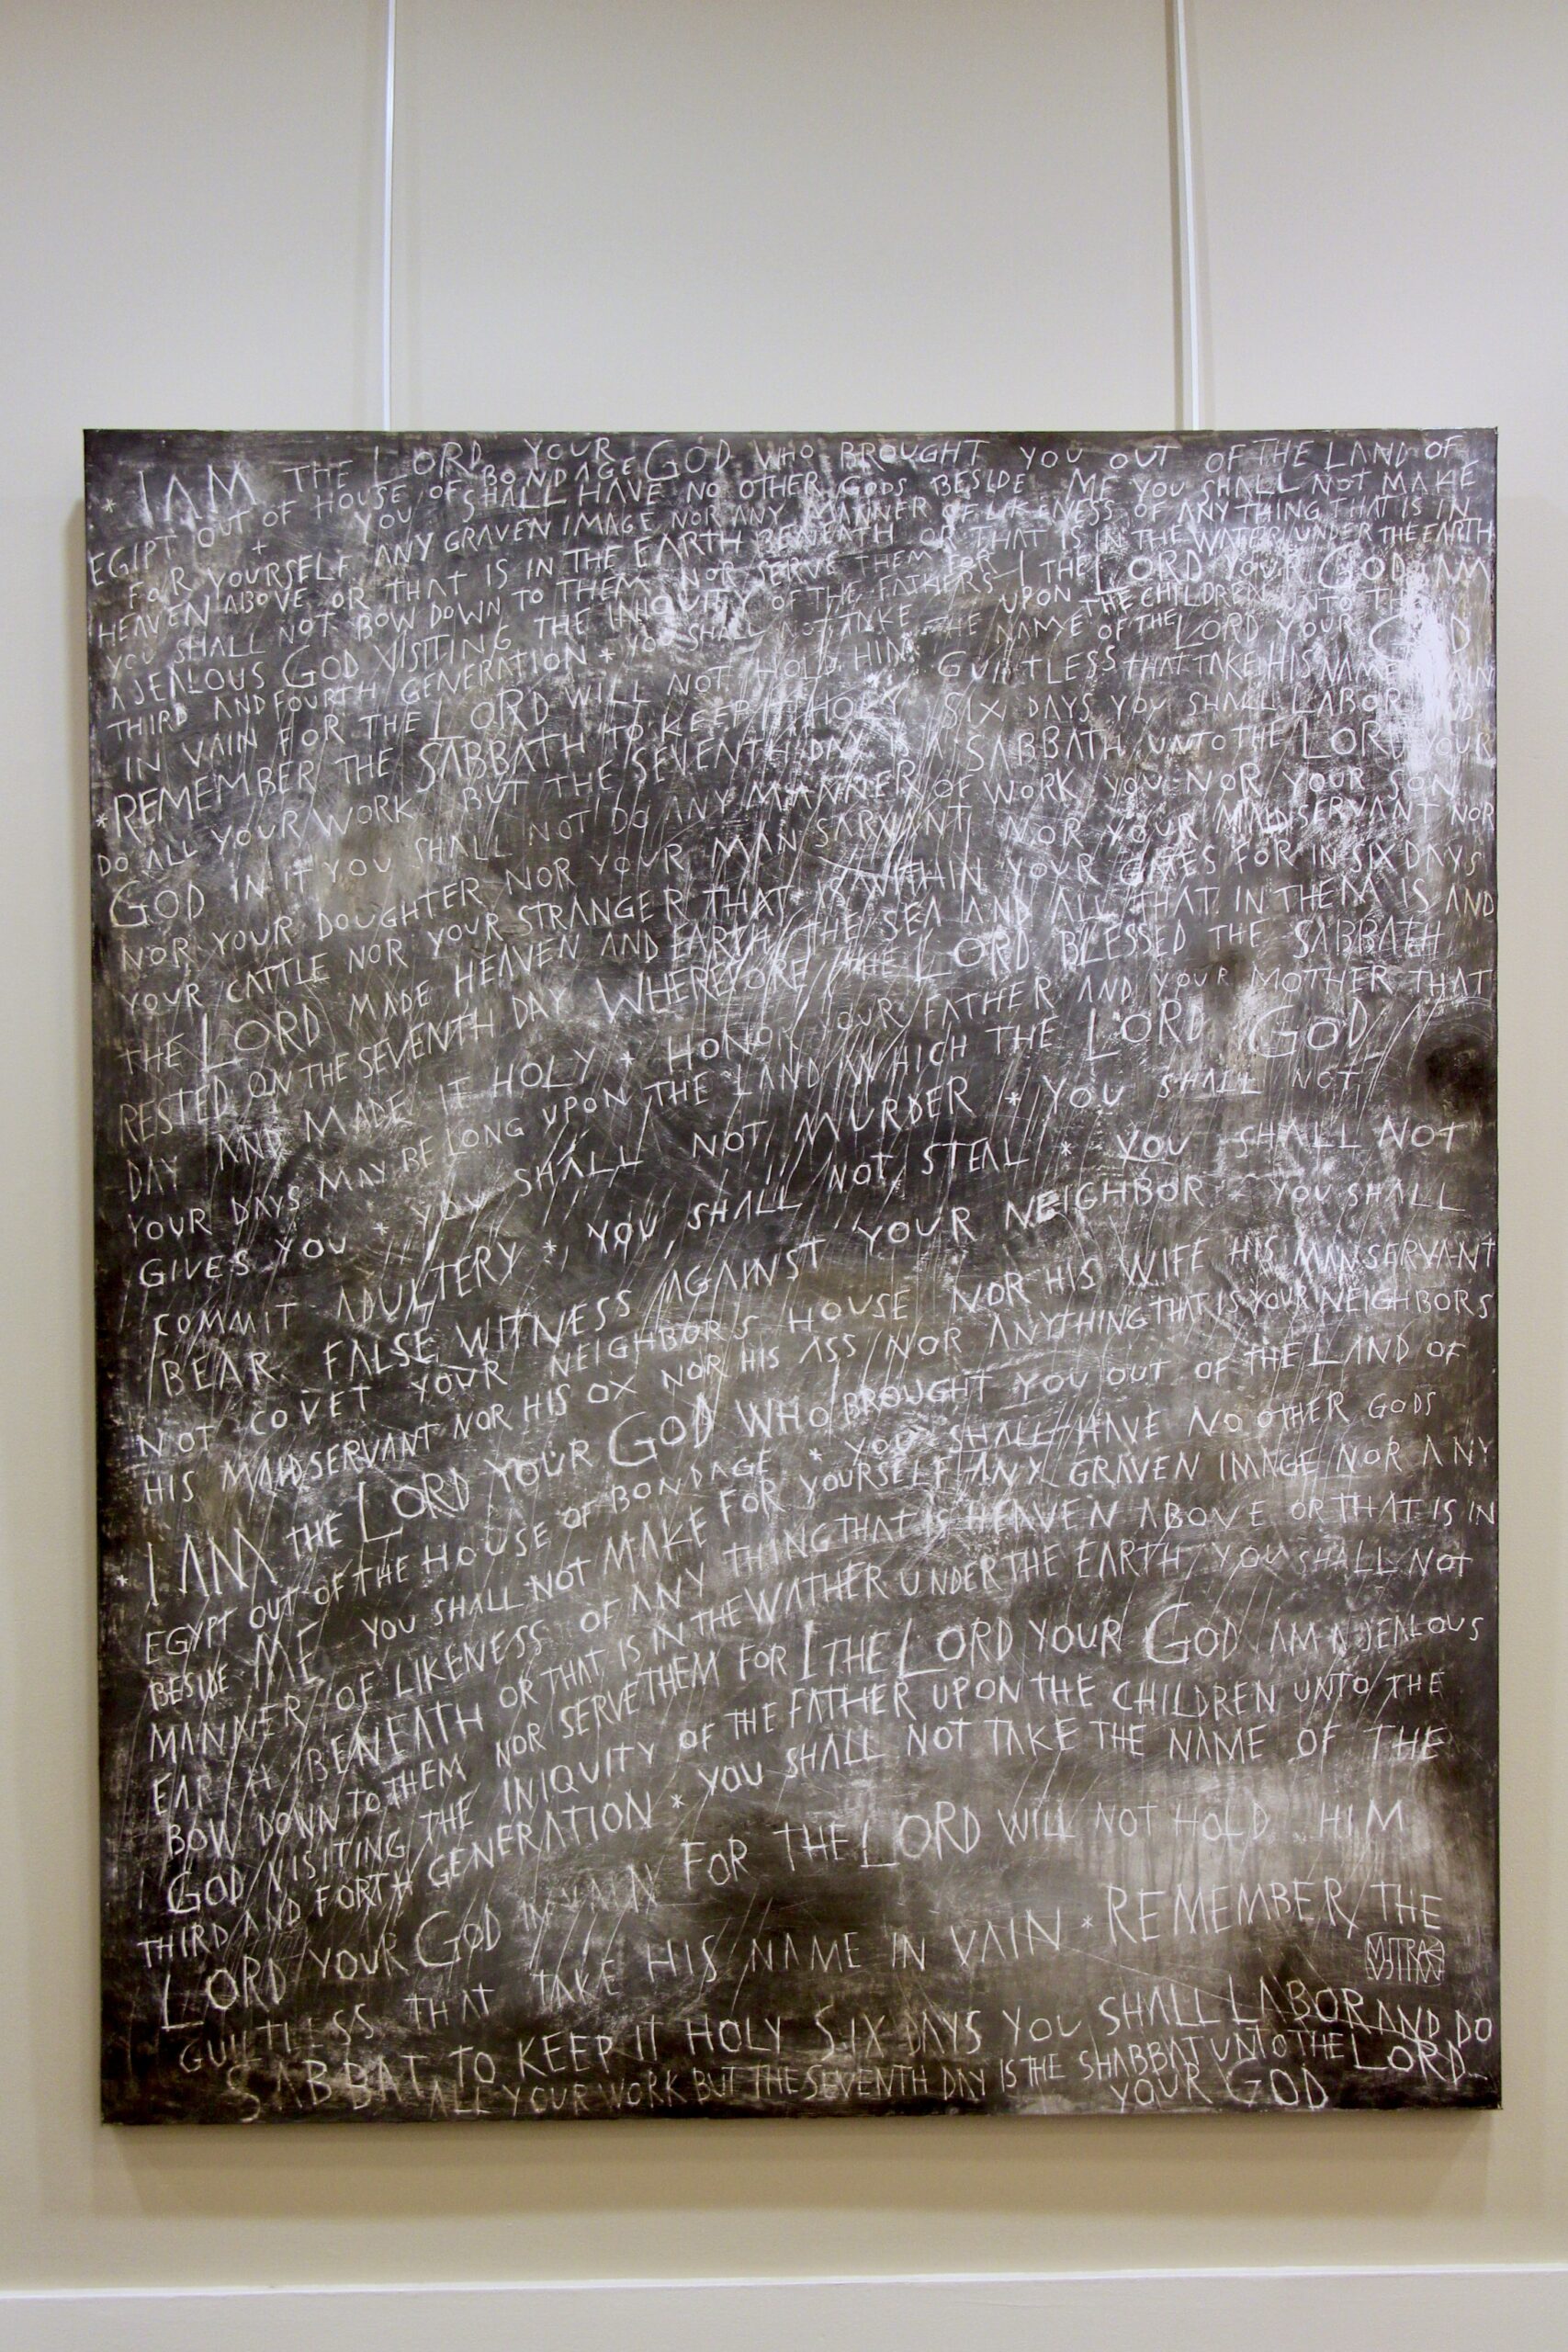 * I AM THE LORD YOUR GOD WHO BROUGHT YOU OUT OF THE LAND OF
EGIPT OUT OF HOUSE OF BONDAGE
+ YOU SHALL HAVE NO OTHER GODS BESIDE ME YOU SHALL NOT MAKE
FOR YOURSELF ANY GRAVEN IMAGE NOR ANY MANNER OF LIKENESS OF ANY THING THAT IS IN
HEAVEN ABOVE OR THAT IS IN THE EARTH BENEATH OR THAT IS IN THE WATER UNDER THE EARTH
YOU SHALL NOT BOW DOWN TO THEM NOR SERVE THEM FOR I THE LORD YOUR GOD AM
A JEALOUS GOD VISITING THE INIQUITY OF THE FATHERS UPON THE CHILDREN UNTO THE
THIRD AND FOURTH GENERATION * YOU SHALL NOT TAKE THE NAME OF THE LORD YOUR GOD
IN VAIN FOR THE LORD WILL NOT HOLD HIM GUILTLESS THAT TAKE HIS NAME VAIN
*REMEMBER THE SABBATH TO KEEP IT HOLY SIX DAYS YOU SHALL LABOR AND
DO ALL YOUR WORK BUT THE SEVENTH DAY SABBATH UNTO THE LORD YOUR
GOD IN IT YOU SHALL NOT DO ANY MANNER OF WORK YOU NOR YOUR SON
NOR YOUR DOUGHTER NOR YOUR MAN SARVANT NOR YOUR MAIDSERVANT NOR
YOUR CATTLE NOR YOUR STRANGER THAT IS WITHIN YOUR GATES FOR IN SIX DAYS
THE LORD MADE HEAVEN AND EARTH THE SEA AND ALL THAT IN THEM IS AND
RESTED ON THE SEVENTH DAY WHEREFORE THE LORD BLESSED THE SABBATH
DAY AND MADE IT HOLY * HONOR YOUR FATHER AND YOUR MOTHER THAT
YOUR DAYS MAY BE LONG UPON THE LAND WHICH THE LORD GOD
GIVES YOU * YOU SHALL NOT MURDER * YOU SHALL NOT
COMMIT ADULTERY * YOU SHALL NOT STEAL * YOU SHALL NOT
BEAR FALSE WITNESS AGAINST YOUR NEIGHBOR * YOU SHALL
NOT COVET YOUR NEIGHBORS HOUSE NOR HIS WIFE HIS MANSERVANT
HIS MAIDSERVANT NOR HIS OX NOR HIS ASS NOR ANYTHING THAT IS YOUR NEIGHBORS
* I AM THE LORD YOUR GOD WHO BROUGHT YOU OUT OF THE LAND OF
EGYPT OUT OF THE HOUSE OF BONDAGE * YOU SHALL HAVE NO OTHER GODS
BESIDE ME YOU SHALL NOT MAKE FOR YOURSELF ANY GRAVEN IMAGE NOR ANY
MANNER OF LIKENESS OF ANY THING THAT IS HEAVEN ABOVE OR THAT IS IN
EARTH BENEATH OR THAT IS IN THE WATHER UNDER THE EARTH YOU SHALL NOT
BOW DOWN TO THEM NOR SERVE THEM FOR I THE LORD YOUR GOD AM A JEALOUS
GOD VISITING THE INIQUITY OF THE FATHER UPON THE CHILDREN UNTO THE
THIRD AND FORTH GENERATION * YOU SHALL NOT TAKE THE NAME OF THE
LORD YOUR GOD IN VAIN FOR THE LORD WILL NOT HOLD HIM
GUILTLESS THAT TAKE HIS NAME IN VAIN * REMEMBER THE
SABBAT TO KEEP IT HOLY SIX DAYS YOU SHALL LABOR AND DO
ALL YOUR WORK BUT THE SEVENTH DAY IS THE SHABBAT UNTO THE LORD...
YOUR GOD